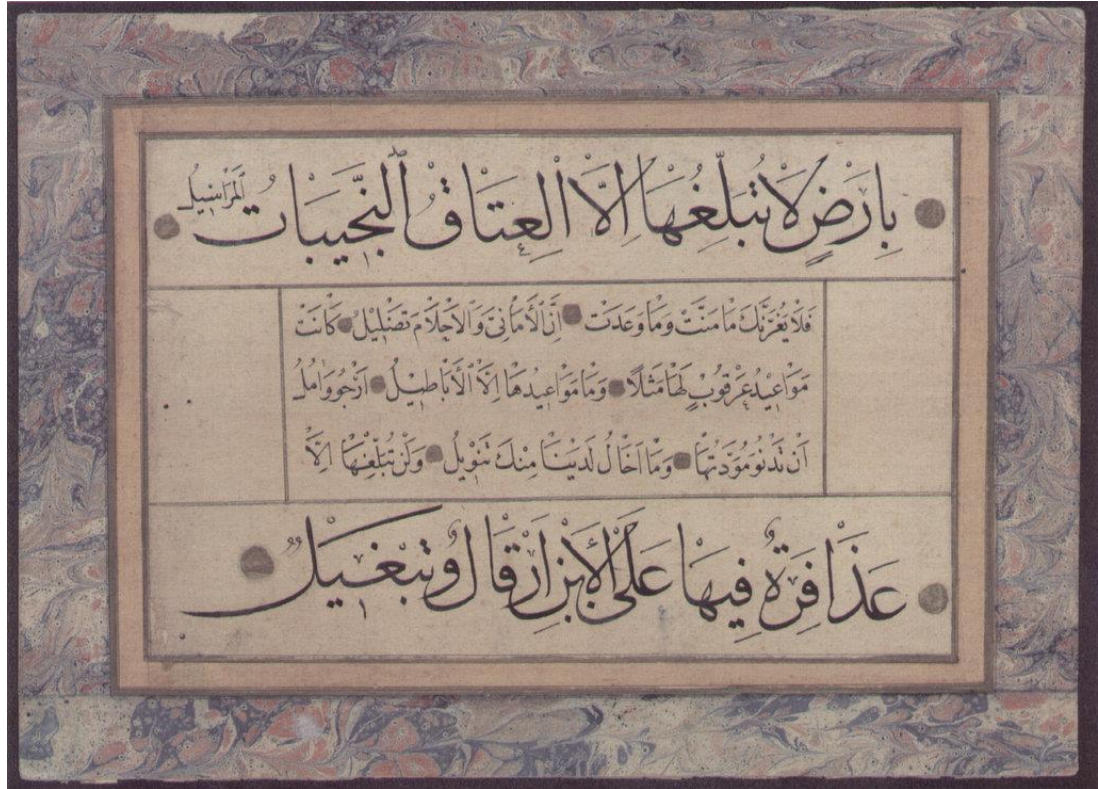 بِارَضٍ لَا تُبَلِّغُهَا اِلَّا الْعِتَاقُ النَّجَيِبَاتُ الْمَرَاسِيلُ
فَلَا يَغُرَّنَّكَ مَا مَنَّتْ وَمَا وَعَدَتْ اِنَّ الْأَمَانِىَّ وَالْاَحْلَامَ تَضْلٖيلُ كَانَتْ
مَوَاعٖيدُ عُرْقُوبٍ لَهَا مَثَلًا وَمَا مَوَاعٖيدُهَا اِلَّا الْأَبَاطٖيلُ اَرْجُو وَاٰمُلُ
اَنْ تَدْنُو مَوَدَّتُهَا وَمَا اَخَالُ لَدَيْنَا مِنْكَ تَنْوٖيلُ وَلَنْ تُبَلِّغَهَا اِلَّا
عَذَافِرَةٌ فِيهَا عَلَى الْأَيْنِ اِرْقَالٌ وَتَبْغٖيلٌ